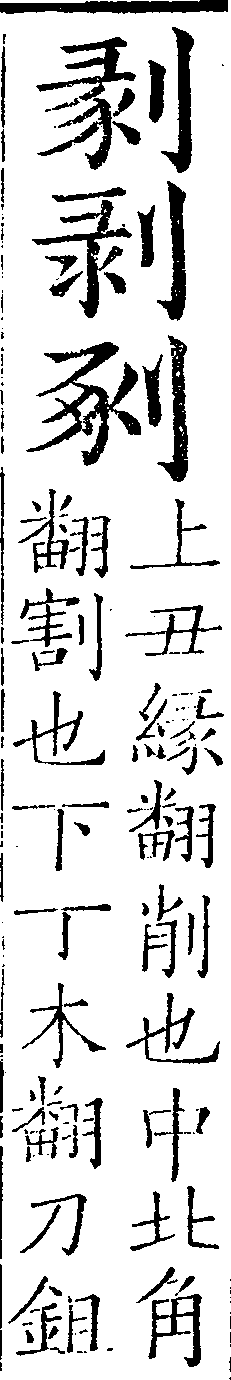 剶剝㓸
上丑緣翻削也中北角
翻割也下丁木翻刀鉏